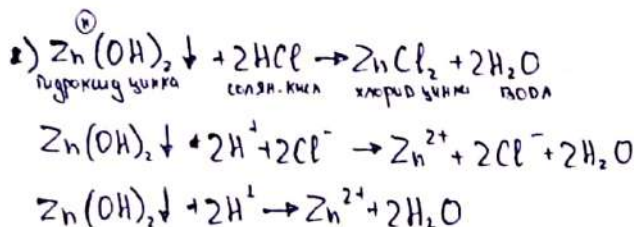 (н)
2) Zn(OH)₂↓ + 2HCl → ZnCl₂ + 2H₂O
гидроксид цинка солян. кисл хлорид цинка вода
Zn(OH)₂↓ + 2H⁺ + 2Cl⁻ → Zn²⁺ + 2Cl⁻ + 2H₂O
Zn(OH)₂↓ + 2H⁺ → Zn²⁺ + 2H₂O